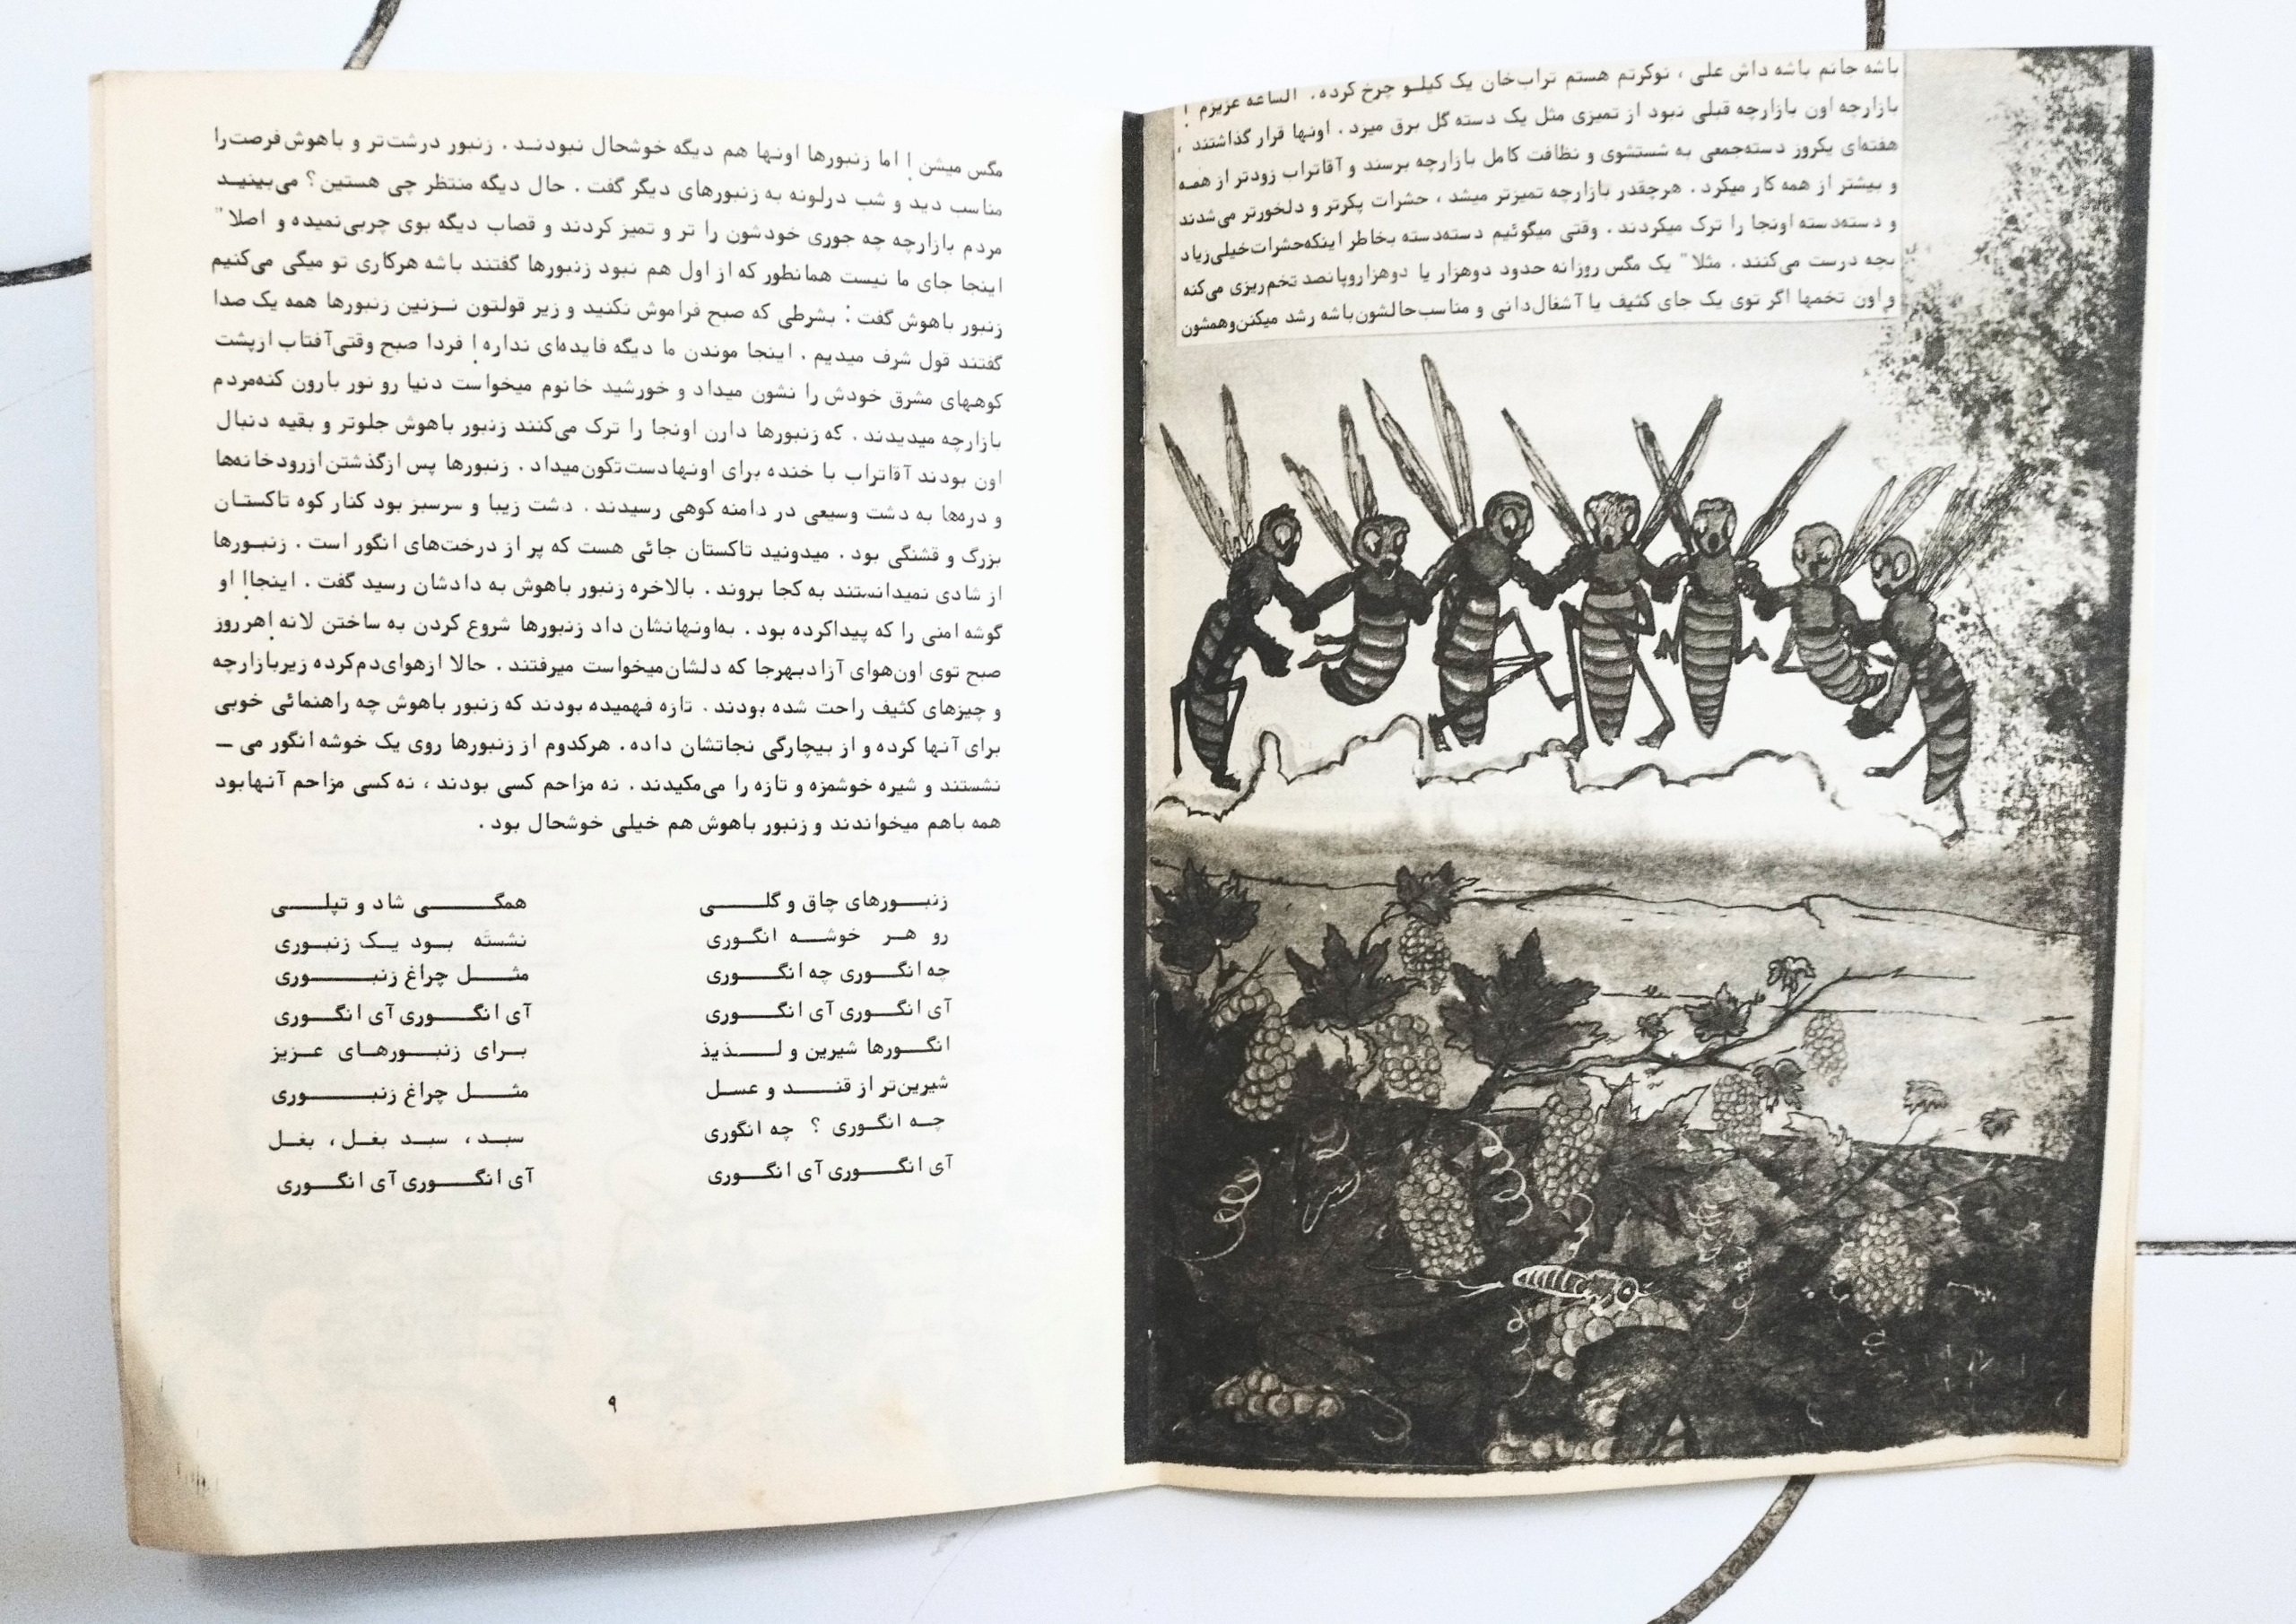 باشه جانم باشه داش علی ، نوکرتم هستم تراب‌خان یک کیلـو چرخ کرده . الساعه عزیزم !
بازارچه اون بازارچه قبلی نبود از تمیزی مثل یک دسته گل برق میزد . اونها قرار گذاشتند ،
هفته‌ای یکروز دسته‌جمعی به شستشوی و نظافت کامل بازارچه برسند و آقاتراب زودتر از همـه
و بیشتر از همه کار میکرد . هرچقدر بازارچه تمیزتر میشد ، حشرات پکرتر و دلخورتر می‌شدند
و دسته‌دسته اونجا را ترک میکردند . وقتی میگوئیم دسته‌دسته بخاطر اینکه‌حشرات‌خیلی‌زیاد
بچه درست می‌کنند . مثلا" یک مگس روزانه حدود دوهزار یا دوهزاروپانصد تخم‌ریزی می‌کنه
و اون تخمها اگر توی یک جای کثیف یا آشغال‌دانی و مناسب‌حالشون‌باشه رشد میکنن‌وهمشون
مگس میشن ! اما زنبورها اونها هم دیگه خوشحال نبودنـد . زنبور درشت‌تر و باهوش‌فرصت‌را
مناسب دید و شب درلونه به زنبورهای دیگر گفت . حال دیگه منتظر چی هستین؟ می‌بینیـد
مردم بازارچه چه جوری خودشون را تر و تمیز کردند و قصاب دیگه بوی چربی‌نمیده و اصلا"
اینجا جای ما نیست همانطور که از اول هم نبود زنبورها گفتند باشه هرکاری تو میگی می‌کنیم
زنبور باهوش گفت : بشرطی که صبح فراموش نکنید و زیر قولتون نـزنین زنبورها همه یک صدا
گفتند قول شرف میدیم . اینجا موندن ما دیگه فایده‌ای نداره ! فردا صبح وقتی‌آفتاب ازپشت
کوههای مشرق خودش را نشون میداد و خورشید خانوم میخواست دنیا رو نور بارون کنه‌مردم
بازارچه میدیدند . که زنبورها دارن اونجا را ترک می‌کنند زنبور باهوش جلوتر و بقیه دنبال
اون بودند آقاتراب با خنده برای اونهادست‌تکون‌میداد . زنبورها پس ازگذشتن‌ازرودخانه‌ها
و دره‌ها به دشت وسیعی در دامنه کوهی رسیدند . دشت زیبا و سرسبز بود کنار کوه تاکستـان
بزرگ و قشنگی بود . میدونید تاکستان جائی هست که پر از درخت‌های انگور است . زنبـورها
از شادی نمیدانستند به کجا بروند . بالاخره زنبور باهوش به دادشان رسید گفت . اینجا! او
گوشه امنی را که پیداکرده بود . به‌اونهانشان داد زنبورها شروع کردن به ساختن لانه !هرروز
صبح توی اون‌هوای آزادبهرجا که دلشان‌میخواست میرفتند . حالا ازهوای‌دم‌کرده زیربازارچه
و چیزهای کثیف راحت شده بودند . تازه فهمیده بودند که زنبور باهوش چه راهنمائی خوبی
برای آنها کرده و از بیچارگی نجاتشان داده . هرکدوم از زنبورها روی یک خوشه انگور می ــ
نشستند و شیره خوشمزه و تازه را می‌مکیدند . نه مزاحم کسی بودند ، نه کسی مزاحم آنهابود
همه باهم میخواندند و زنبور باهوش هم خیلی خوشحال بود .
زنبـــورهای چاق و گلـــــی همگـــــــی شاد و تپلـــــی
رو هـر خوشـــه انگــوری نشسته بـود یـک زنبـوری
چه انگــــوری چه انگــــوری مثـــل چراغ زنبـــــــوری
آی انگــــوری آی انگــــوری آی انگــــوری آی انگــــوری
انگـــورها شیرین و لـــــذیذ بـرای زنبــورهـای عـزیز
شیرین‌تر از قنـــد و عسـل مثـــل چراغ زنبـــــــوری
چـه انگــوری ؟ چه انگوری سبـد ، سبـد بغـل ، بغـل
آی انگــــوری آی انگــــوری آی انگــــوری آی انگــــوری
۹